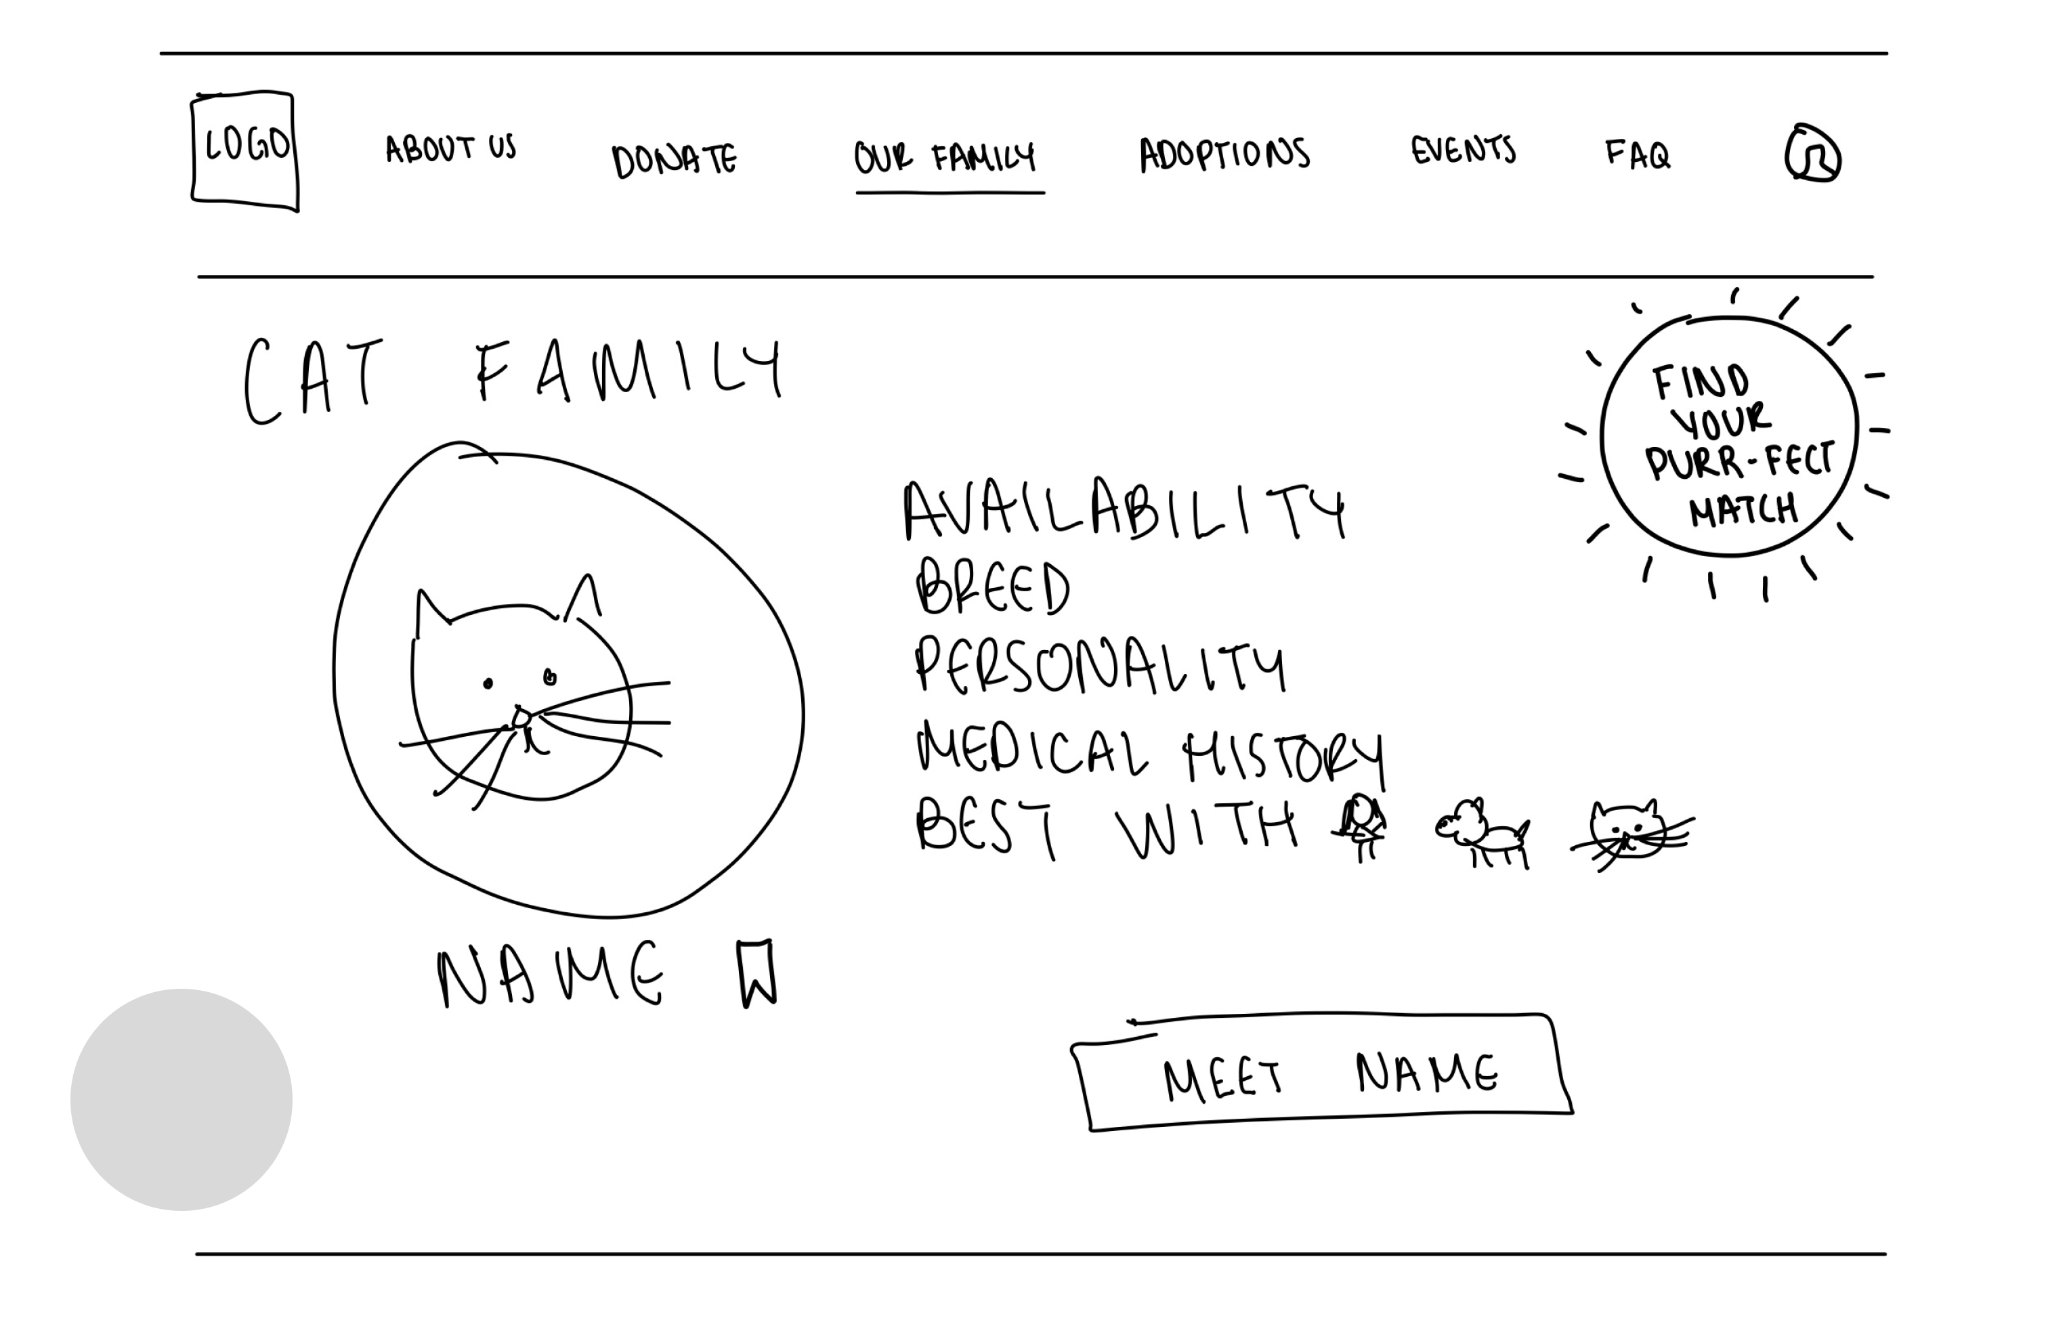 LOGO
ABOUT US
DONATE
OUR FAMILY
ADOPTIONS
EVENTS
FAQ
CAT FAMILY
FIND
YOUR
PURR-FECT
MATCH
AVAILABILITY
BREED
PERSONALITY
MEDICAL HISTORY
BEST WITH
NAME
MEET NAME